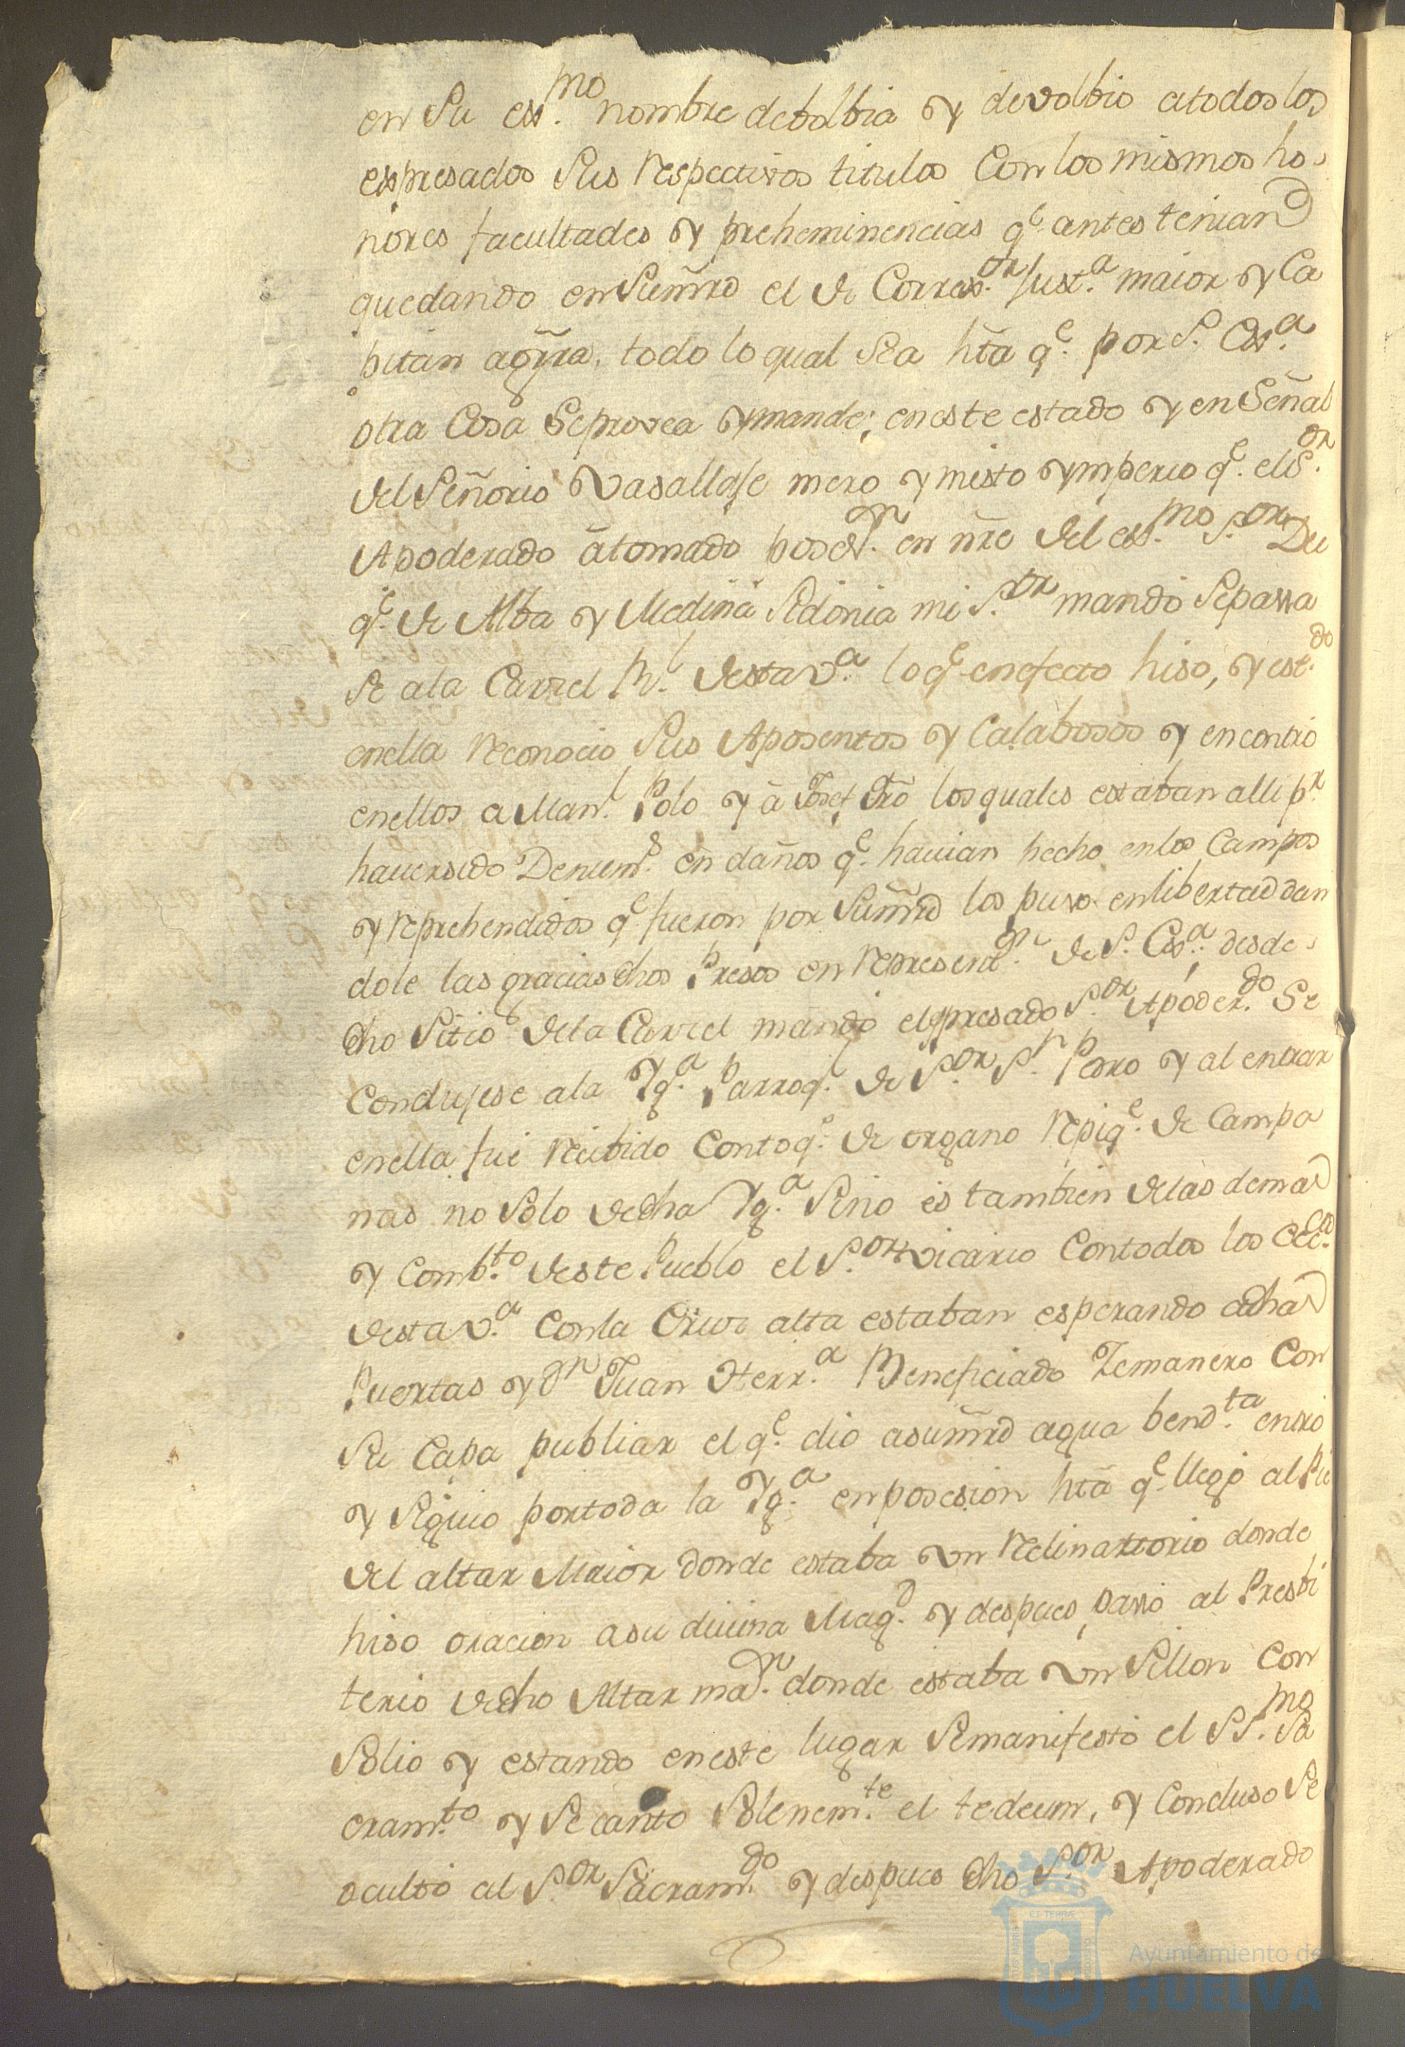 en su ex.mo nombre debolbia y devolbio a todos los
expresados sus respectivos titulos con los mismos ho-
nores facultades y preheminencias q.e antes tenian
quedando en su mrd el de Correx.or Just.a maior y Ca
pitan a grra. todo lo qual sea hta q.e por S. Ex.a
otra cosa se provea y mande; en este estado y en señal
del señorio vasallaje mero y misto ymperio q.e el S.or
Apoderado a tomado poses.on en nre del ex.mo S.or Du
q.e de Alba y Medina Sidonia mi S.or mandó se pasa
se a la Carzel R.l desta V.a lo q.e en efecto hiso, y est.do
en ella reconocio sus Aposentos y Calabosos y encontro
en ellos a Man.l Polo y a Josef los quales estaban alli p.r
haver sido Denun.s en daños q.e havian hecho en los Campos
y reprehendidos q.e fueron por su mrd los puso en libertad dan
dole las gracias dhos Presos en represent.on de S. Ex.a; desde
dho sitio de la Carzel mandó el expresado S.or Apoder.do se
condujese a la Yg.a Parroq.l de S.or S.n Pedro y al entrar
en ella fue recibido con toq.e de organo repiq.e de campa
nas no solo de dha Yg.a sino es tambien de las demas
y comb.to deste Pueblo el S.or Vicario con todos los Ecc.cos
desta V.a con la Cruz alta estaban esperando a dhas
Puertas y D.n Juan Herr.a Beneficiado Zemanero con
su capa publiar el q.e dio a su mrd agua bend.ta entró
y siguio por toda la Yg.a en posesion hta q.e llegó al Pie
del altar Maior donde estaba un reclinartorio donde
hiso oracion a su divina Mag.d y despues passó al Presbi
terio de dho Altar ma.r donde estaba un sillon con
solio y estando en este lugar se manifestó el SS.mo Sa
cram.to y se canto solenem.te el tedeum, y concluso se
ocultó al S.or Sacram.do y despues dho S.or Apoderado
Ayuntamiento de
HUELVA